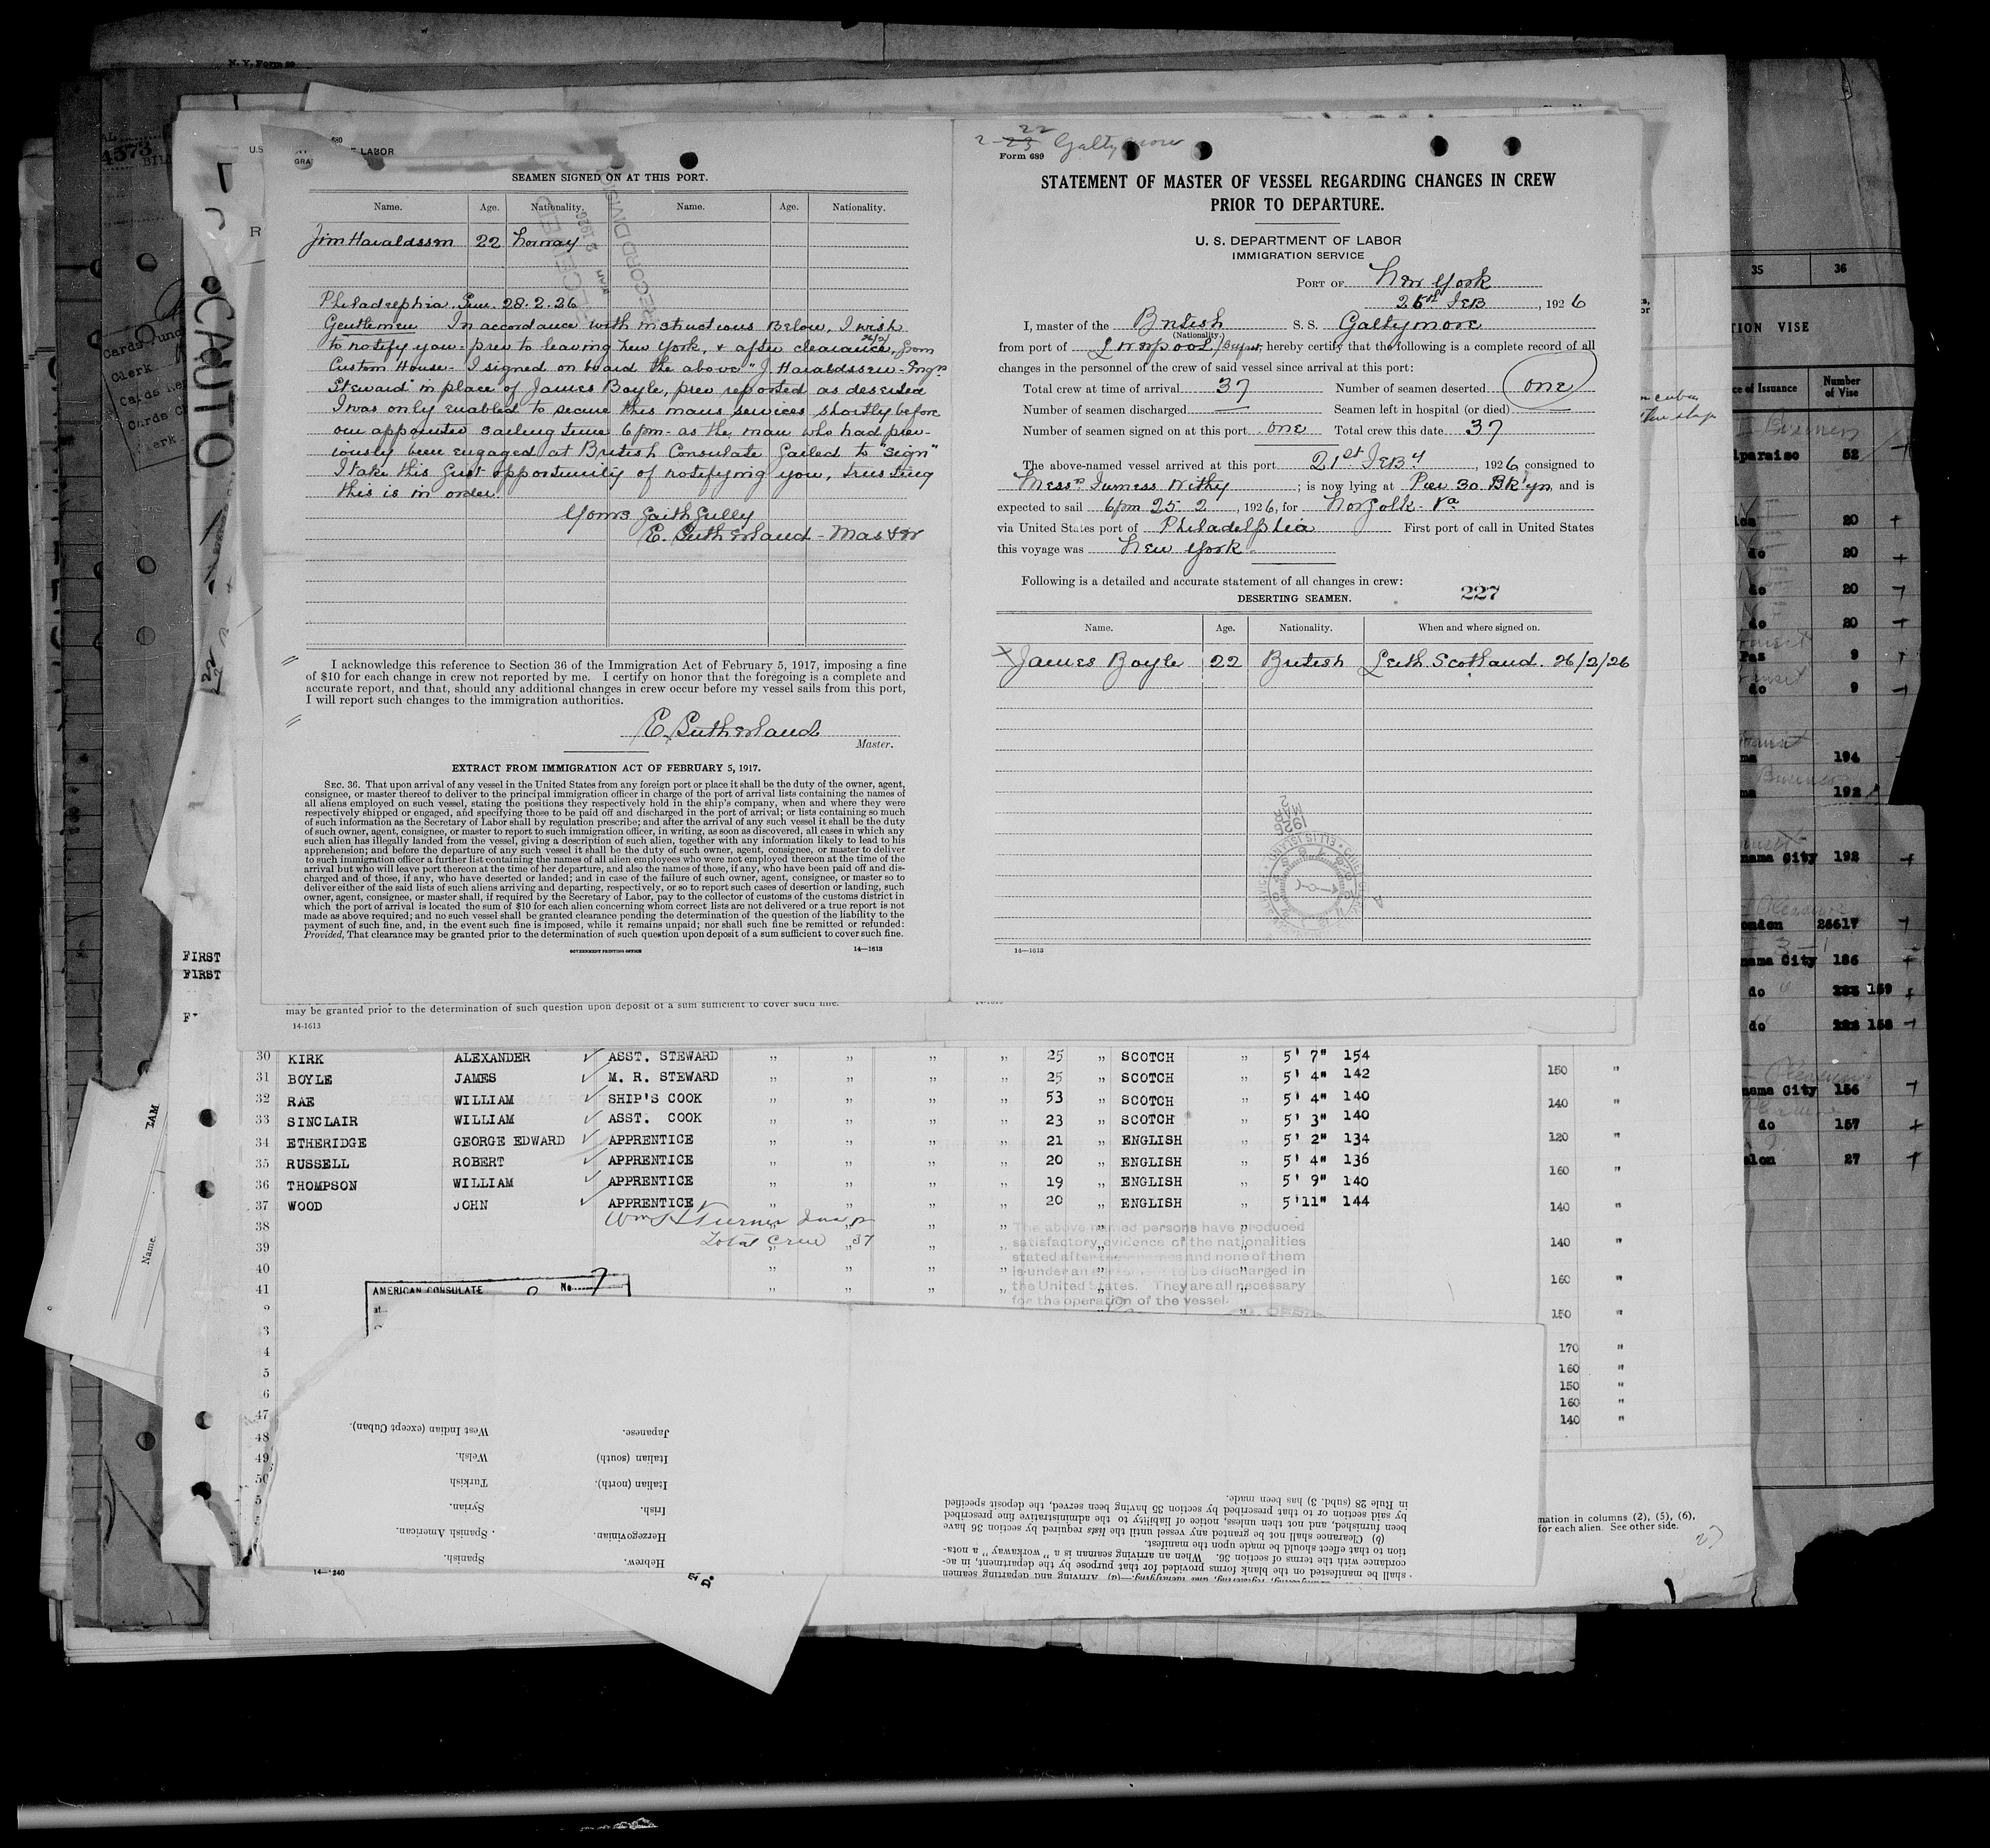 N. Y. Form 99
4573
CAUTIO
LABOR
SEAMEN SIGNED ON AT THIS PORT.
Name. Age. Nationality. Name. Age. Nationality.
Jim Haraldssen 22 Norway
Philadelphia. Pen. 28.2.26
Gentlemen In accordance with instructions Below, I wish
to notify you - prev to leaving New York, & after clearance, from
Custom House - I signed on board the above "J Haraldssen - Engrs
Steward" in place of James Boyle, prev reported as deserted
I was only enabled to secure this mans services shortly before
our appointed sailing time 6 pm - as the man who had prev-
iously been engaged at British Consulate failed to "sign"
I take this first opportunity of notifying you, trusting
this is in order.
Yours faithfully
E. Sutherland - Master
I acknowledge this reference to Section 36 of the Immigration Act of February 5, 1917, imposing a fine
of $10 for each change in crew not reported by me. I certify on honor that the foregoing is a complete and
accurate report, and that, should any additional changes in crew occur before my vessel sails from this port,
I will report such changes to the immigration authorities.
E. Sutherland
Master.
EXTRACT FROM IMMIGRATION ACT OF FEBRUARY 5, 1917.
SEC. 36. That upon arrival of any vessel in the United States from any foreign port or place it shall be the duty of the owner, agent,
consignee, or master thereof to deliver to the principal immigration officer in charge of the port of arrival lists containing the names of
all aliens employed on such vessel, stating the positions they respectively hold in the ship's company, when and where they were
respectively shipped or engaged, and specifying those to be paid off and discharged in the port of arrival; or lists containing so much
of such information as the Secretary of Labor shall by regulation prescribe; and after the arrival of any such vessel it shall be the duty
of such owner, agent, consignee, or master to report to such immigration officer, in writing, as soon as discovered, all cases in which any
such alien has illegally landed from the vessel, giving a description of such alien, together with any information likely to lead to his
apprehension; and before the departure of any such vessel it shall be the duty of such owner, agent, consignee, or master to deliver
to such immigration officer a further list containing the names of all alien employees who were not employed thereon at the time of the
arrival but who will leave port thereon at the time of her departure, and also the names of those, if any, who have been paid off and dis-
charged and of those, if any, who have deserted or landed; and in case of the failure of such owner, agent, consignee, or master so to
deliver either of the said lists of such aliens arriving and departing, respectively, or so to report such cases of desertion or landing, such
owner, agent, consignee, or master shall, if required by the Secretary of Labor, pay to the collector of customs of the customs district in
which the port of arrival is located the sum of $10 for each alien concerning whom correct lists are not delivered or a true report is not
made as above required; and no such vessel shall be granted clearance pending the determination of the question of the liability to the
payment of such fine, and, in the event such fine is imposed, while it remains unpaid; nor shall such fine be remitted or refunded:
Provided, That clearance may be granted prior to the determination of such question upon deposit of a sum sufficient to cover such fine.
GOVERNMENT PRINTING OFFICE 14—1613
2-23 22 Galtymore
Form 689
STATEMENT OF MASTER OF VESSEL REGARDING CHANGES IN CREW
PRIOR TO DEPARTURE.
U. S. DEPARTMENT OF LABOR
IMMIGRATION SERVICE
PORT OF New York
25th FEB, 1926
I, master of the British S. S. Galtymore
(Nationality.)
from port of Liverpool, hereby certify that the following is a complete record of all
changes in the personnel of the crew of said vessel since arrival at this port:
Total crew at time of arrival 37 Number of seamen deserted one
Number of seamen discharged — Seamen left in hospital (or died) —
Number of seamen signed on at this port one Total crew this date 37
The above-named vessel arrived at this port 21st FEBy, 1926 consigned to
Messrs Furness Withy; is now lying at Pier 30 BK'yn, and is
expected to sail 6pm 25 2, 1926, for Norfolk - Va
via United States port of Philadelphia First port of call in United States
this voyage was New York
Following is a detailed and accurate statement of all changes in crew:
227
DESERTING SEAMEN.
Name. Age. Nationality. When and where signed on.
James Boyle 22 British Leith Scotland. 26/2/26
14—1613
may be granted prior to the determination of such question upon deposit of a sum sufficient to cover such fine.
14-1613
FIRST
FIRST
30 KIRK ALEXANDER ASST. STEWARD " " " " 25 " SCOTCH " 5' 7" 154
31 BOYLE JAMES M. R. STEWARD " " " " 25 " SCOTCH " 5' 4" 142
32 RAE WILLIAM SHIP'S COOK " " " " 53 " SCOTCH " 5' 4" 140
33 SINCLAIR WILLIAM ASST. COOK " " " " 23 " SCOTCH " 5' 3" 140
34 ETHERIDGE GEORGE EDWARD APPRENTICE " " " " 21 " ENGLISH " 5' 2" 134
35 RUSSELL ROBERT APPRENTICE " " " " 20 " ENGLISH " 5' 4" 136
36 THOMPSON WILLIAM APPRENTICE " " " " 19 " ENGLISH " 5' 9" 140
37 WOOD JOHN APPRENTICE " " " " 20 " ENGLISH " 5'11" 144
38 Wm H Turner Insp
39 Total Crew 37
40
41
The above named persons have produced
satisfactory evidence of the nationalities
stated after their names and none of them
is under an agreement to be discharged in
the United States. They are all necessary
for the operation of the vessel.
AMERICAN CONSULATE No. 7
47
48
49
50
West Indian (except Cuban).
Welsh.
Turkish
Syrian.
Spanish American.
Spanish.
Japanese.
Italian (south)
Italian (north).
Irish.
Herzegovinian.
Hebrew.
shall be manifested on the blank forms provided for that purpose by the department, in ac-
cordance with the terms of section 36. When an arriving seaman is a "workaway" a nota-
tion to that effect should be made upon the manifest.
(b) Clearance shall not be granted any vessel until the lists required by section 36 have
been furnished, and not then unless, notice of liability to the administrative fine prescribed
by said section or to that prescribed by section 35 having been served, the deposit specified
in Rule 28 (subd. 3) has been made.
150 "
140
120 "
160
140 "
140 "
160 "
150 "
170 "
160 "
150 "
160 "
140 "
mation in columns (2), (5), (6),
for each alien. See other side.
27
35 36
TION VISE
ce of Issuance Number of Vise
lparaiso 52
20
do 20
do 20
do 20
Pas 9
do 9
ma 194
ma 192
nama City 192
ondon 26617
nama City 186
do 159
do 158
nama City 156
do 157
27